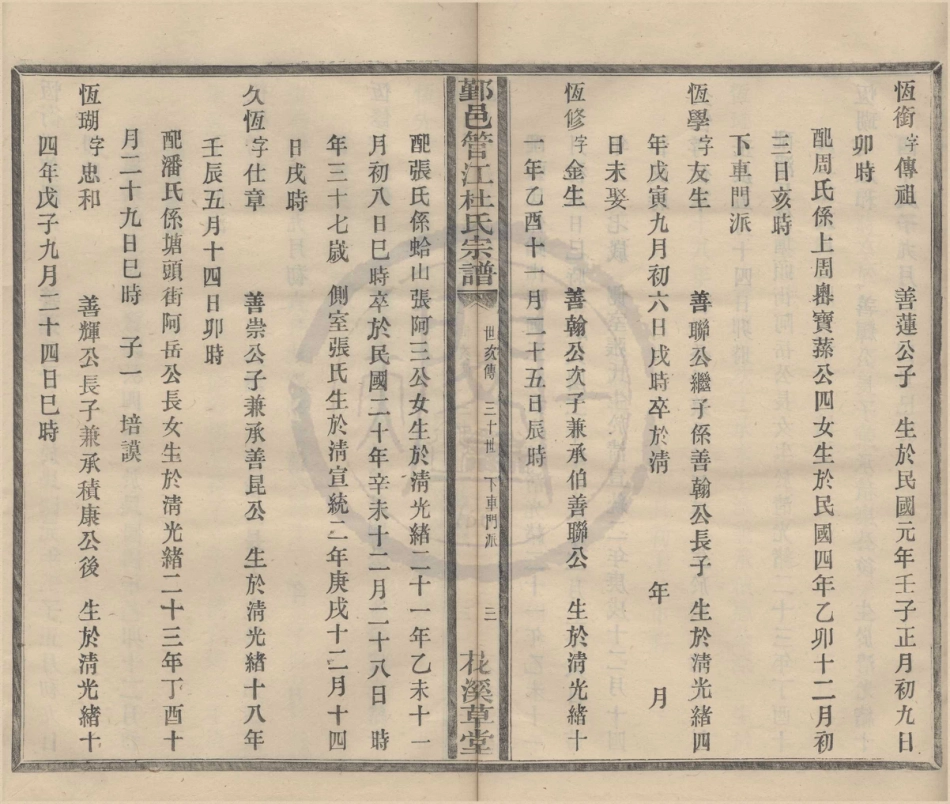 恆銜字傳祖 善蓮公子 生於民國元年壬子正月初九日
卯時
配周氏係上周嶴寶蓀公四女生於民國四年乙卯十二月初
三日亥時
下車門派
恆學字友生 善聯公繼子係善翰公長子 生於清光緒四
年戊寅九月初六日戌時卒於清 年 月
日未娶
恆修字金生 善翰公次子兼承伯善聯公 生於清光緒十
一年乙酉十一月二十五日辰時
鄞邑管江杜氏宗譜 世次傳 三十世 下車門派 三 花溪草堂
配張氏係蛤山張阿三公女生於清光緒二十一年乙未十一
月初八日巳時卒於民國二十年辛未十二月二十八日 時
年三十七歲 側室張氏生於清宣統二年庚戌十二月十四
日戌時
久恆字仕章 善崇公子兼承善昆公 生於清光緒十八年
壬辰五月十四日卯時
配潘氏係塘頭街阿岳公長女生於清光緒二十三年丁酉十
月二十九日巳時 子一 培謨
恆瑚字忠和 善輝公長子兼承積康公後 生於清光緒十
四年戊子九月二十四日巳時